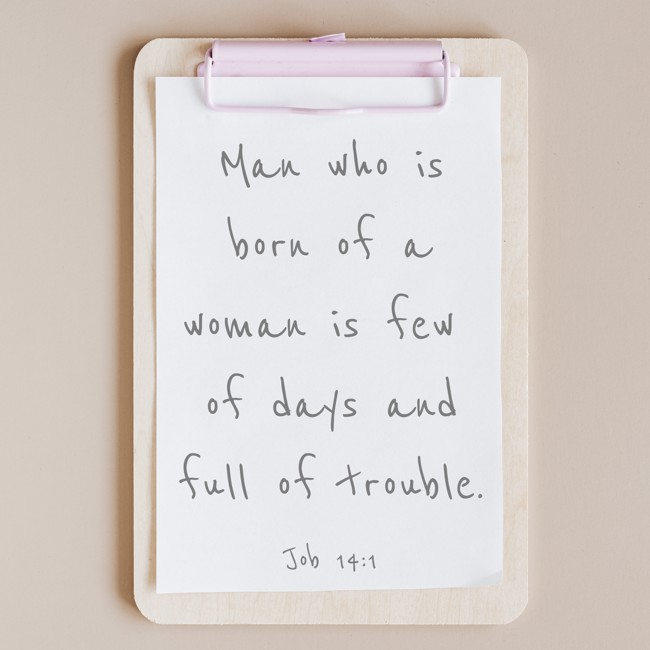 Man who is
born of a
woman is few
of days and
full of trouble.
Job 14:1